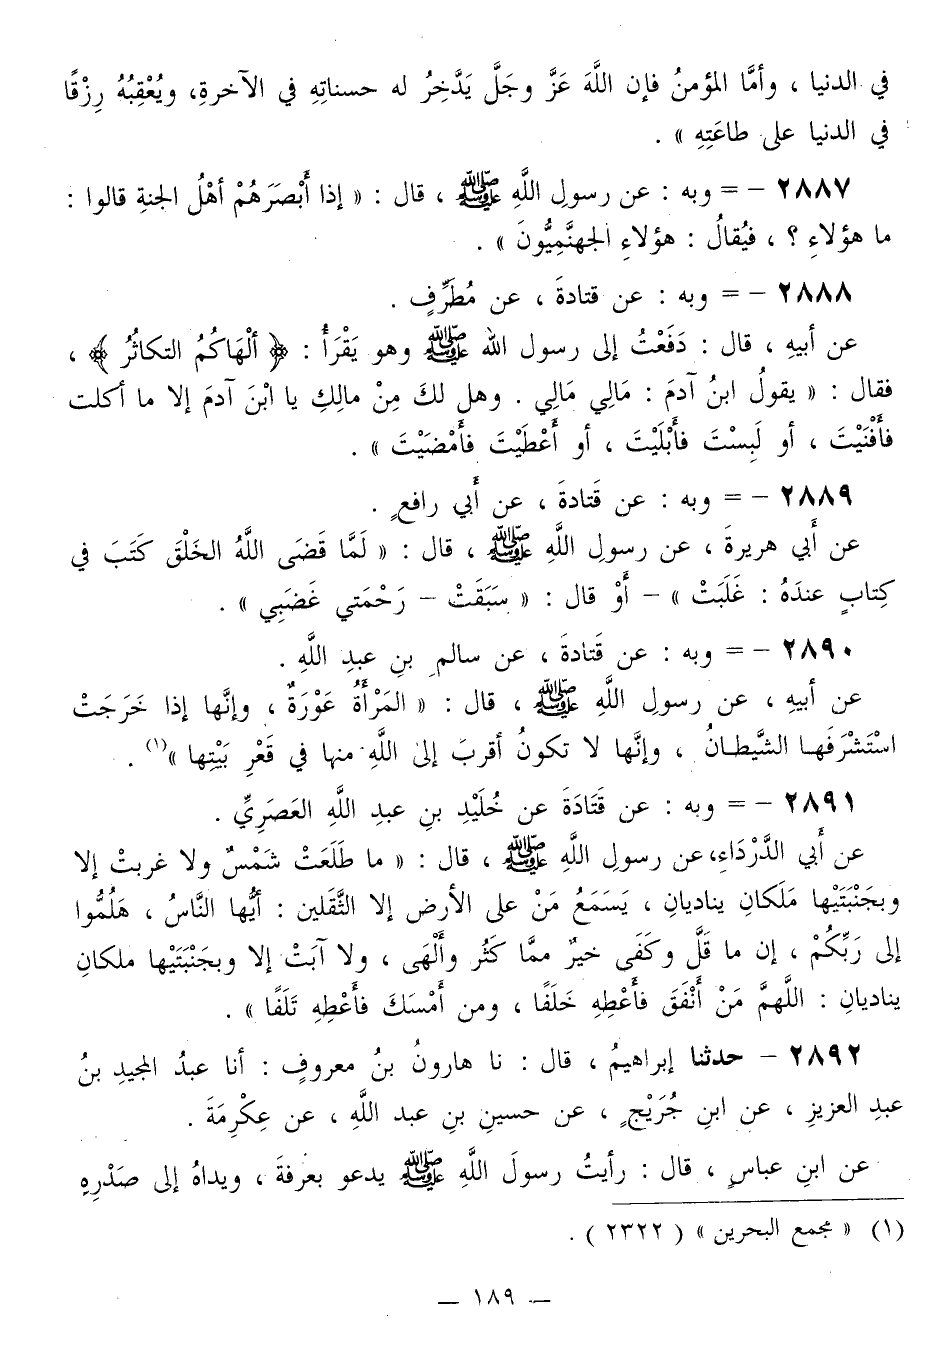 في الدنيا ، وأمَّا المؤمنُ فإن اللَّهَ عَزَّ وجَلَّ يَدَّخِرُ له حسناتِهِ في الآخرةِ، ويُعْقِبُهُ رِزْقًا
في الدنيا على طاعَتِهِ » .
٢٨٨٧ – = وبه : عن رسولِ اللَّهِ ﷺ ، قال : « إذا أَبْصَرَهُمْ أهْلُ الجنةِ قالوا :
ما هؤلاءِ ؟ ، فيُقالُ : هؤلاءِ الجهنَّمِيُّونَ » .
٢٨٨٨ – = وبه : عن قتادةَ ، عن مُطَرِّفٍ .
عن أبيهِ ، قال : دَفَعْتُ إلى رسول الله ﷺ وهو يَقْرَأُ : ﴿ ألْهَاكُمُ التكاثُرُ ﴾ ،
فقال : « يقولُ ابنُ آدمَ : مَالِي مَالِي . وهل لكَ مِنْ مالِكِ يا ابْنَ آدمَ إلا ما أكلت
فأَفْنَيْتَ ، أو لَبِسْتَ فأَبْلَيْتَ ، أو أَعْطَيْتَ فأَمْضَيْتَ » .
٢٨٨٩ – = وبه : عن قَتادةَ ، عن أَبي رافعٍ .
عن أَبي هريرةَ ، عن رسولِ اللَّهِ ﷺ ، قال : « لَمَّا قضَى اللَّهُ الخَلْقَ كَتَبَ في
كِتابٍ عندَهُ : غَلَبَتْ » – أَوْ قال : « سَبَقَتْ – رَحْمَتي غَضَبِي » .
٢٨٩٠ – = وبه : عن قَتادةَ ، عن سالمِ بنِ عبدِ اللَّهِ .
عن أبيهِ ، عن رسولِ اللَّهِ ﷺ ، قال : « المَرْأَةُ عَوْرَةٌ ، وإنَّها إذا خَرَجَتْ
اسْتَشْرَفَها الشَّيطانُ ، وإنَّها لا تكونُ أقربَ إلى اللَّهِ منها في قَعْرِ بَيْتِها »(١) .
٢٨٩١ – = وبه : عن قَتَادَةَ عن خُلَيْدِ بنِ عبدِ اللَّهِ العَصَرِيِّ .
عن أَبي الدَّرْدَاءِ، عن رسولِ اللَّهِ ﷺ ، قال : « ما طَلَعَتْ شَمْسٌ ولا غربتْ إلا
وبجَنْبَتَيْها مَلَكانِ يناديانِ ، يَسَمَعُ مَنْ على الأرضِ إلا الثَّقَلين : أيُّها النَّاسُ ، هَلُمُّوا
إلى رَبِّكُمْ ، إن ما قَلَّ وكَفَى خيرٌ ممَّا كَثُر وأَلْهَى ، ولا آبَتْ إلا وبجَنْبَتَيْها ملكانِ
يناديانِ : اللَّهمَّ مَنْ أَنْفَقَ فأَعْطِهِ خَلَفًا ، ومن أَمْسَكَ فأَعْطِهِ تَلَفًا » .
٢٨٩٢ – حدثنا إبراهيمُ ، قال : نا هارونُ بنُ معروفٍ : أنا عبدُ المجيدِ بنُ
عبدِ العزيزِ ، عن ابنِ جُرَيْجٍ ، عن حسينِ بنِ عبد اللَّهِ ، عن عِكْرِمَةَ .
عن ابنِ عباسٍ ، قال : رأيتُ رسولَ اللَّهِ ﷺ يدعو بعَرفةَ ، ويداهُ إلى صَدْرِهِ
(١) « مجمع البحرين » ( ٢٣٢٢ ) .
– ١٨٩ –